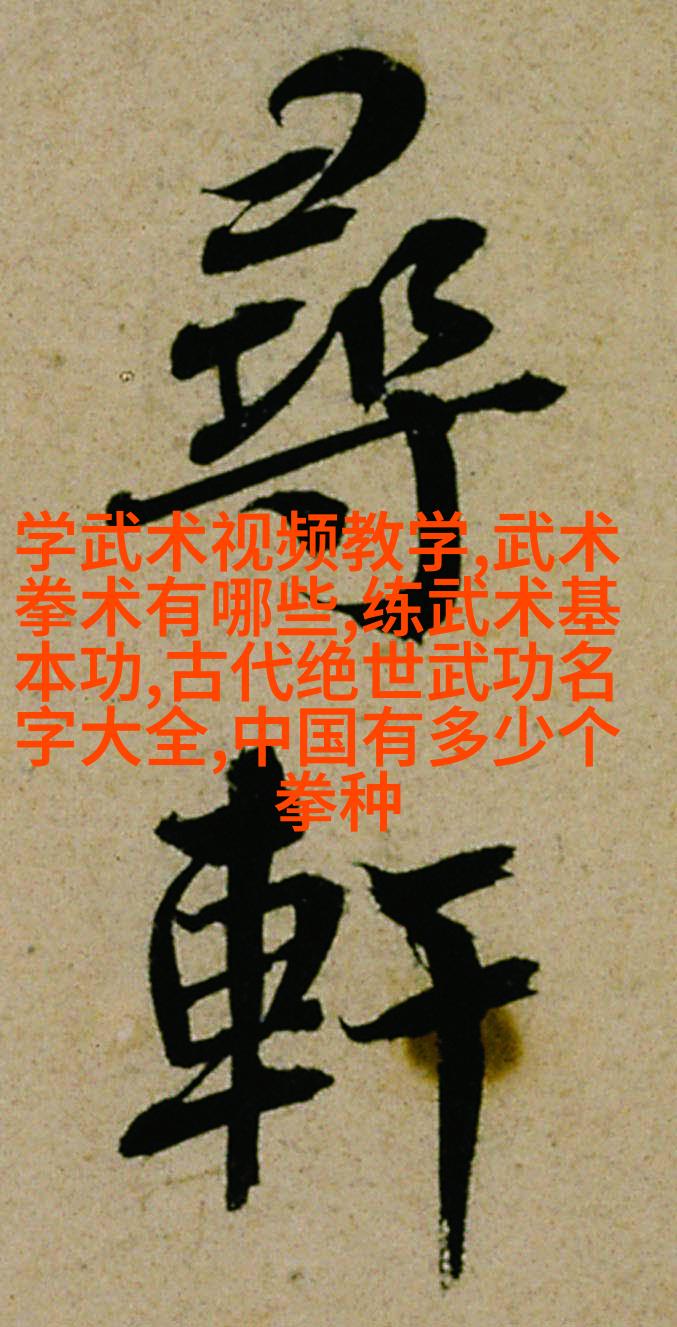 尋
軒
学武术视频教学,武术
拳术有哪些,练武术基
本功,古代绝世武功名
字大全,中国有多少个
拳种